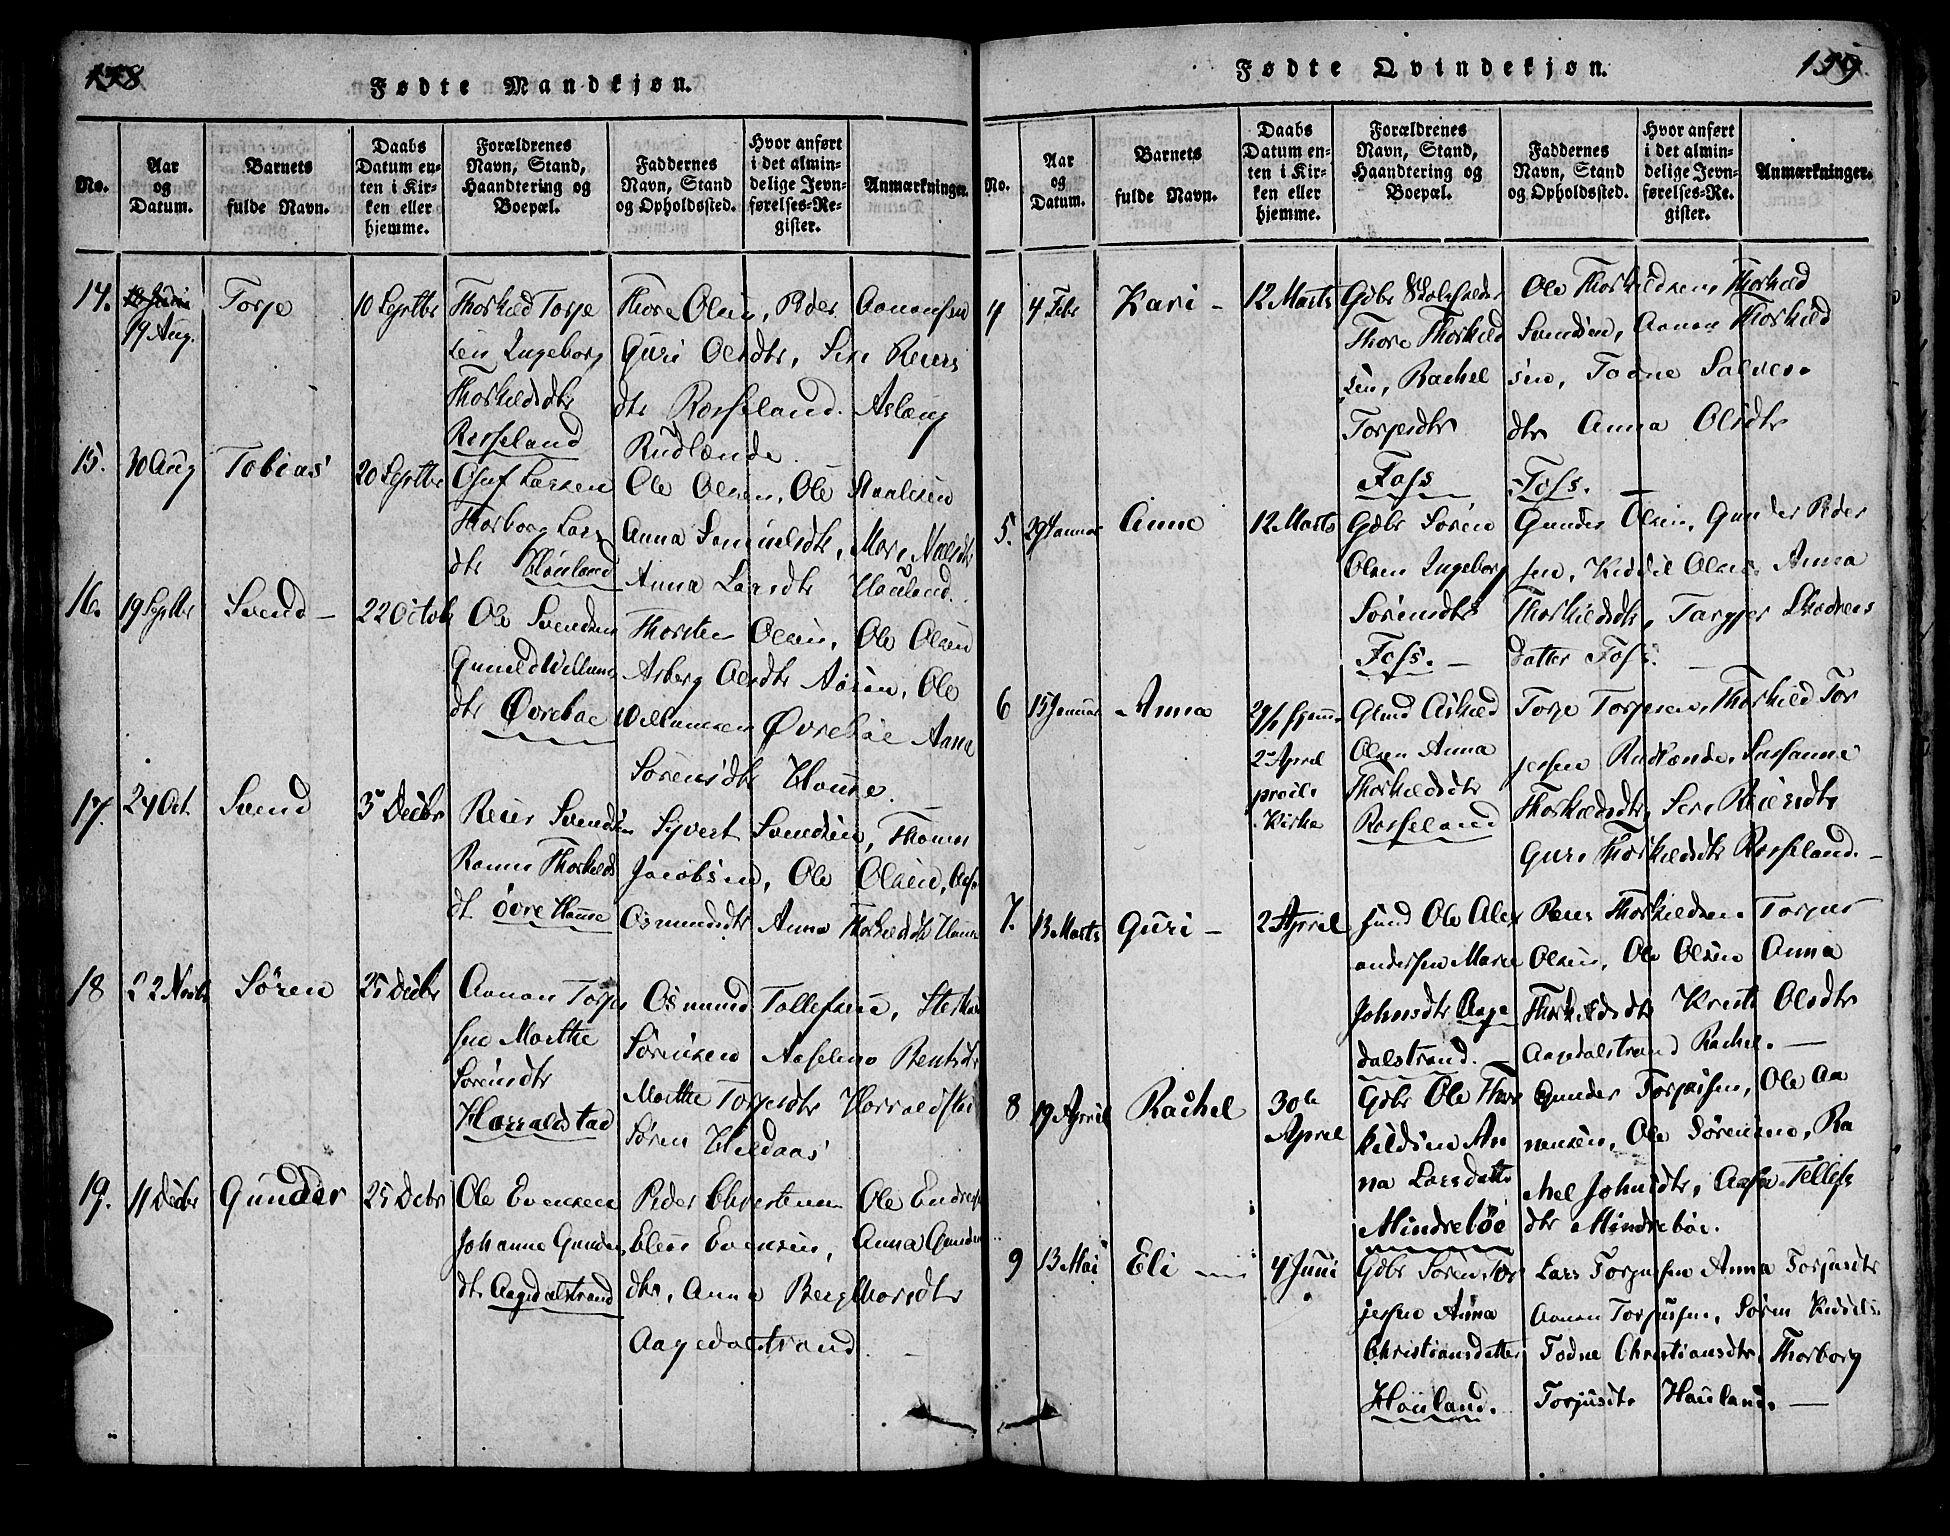 158
Fødte Mandkjøn.
No.
Aar og Datum.
Barnets fulde Navn.
Daabs Datum enten i Kirken eller hjemme.
Forældrenes Navn, Stand, Haandtering og Boepæl.
Faddernes Navn, Stand og Opholdssted.
Hvor anført i det almindelige Jevnførelses-Register.
Anmærkninger.
14. 19 Aug. Torje 10 Septbr
Thorkild Torje
sen Ingeborg
Thorkildsdtr
Rosseland
Thore Olsen, Peder Aanensen
Guri Olsdtr, Siri Reiers
dtr Rosseland. Aslaug
Rudlænde.
15. 30 Aug Tobias 20 Septbr
Oluf Larsen
Thorborg Lars
dtr Høuland
Ole Olsen, Ole Aanlesen
Anna Samuelsdtr, Mari Nielsdtr
Anna Larsdtr Høuland.
16. 19 Septbr Svend - 22 Octob
Ole Svendsen
Gunild Willums
dtr Øvrebøe
Thorsten Olsen, Ole Olsen
Asberg Olsdtr Aasen, Ole
Willumsen Øvrebøe Anna
Sørensdtr Houne.
17. 24 Oct. Svend 3 Decbr
Reier Svendsen
Thorkilds
dt. øvre Houne
Syvert Svendsen, Thomas
Jacobsen, Ole Olsen,
Osmundsdtr Anna Thorkildsdtr Houne
18 22 Novbr Søren 25 Decbr
Aanon Torje
sen Marthe
Sørensdtr
Harraldstad
Osmund Tollefsen,
Sørensen Berntsdtr
Marthe Torjesdtr Harraldstad
Søren Hildaas
19. 11 Decbr Gunder 25 Decbr
Ole Evensen
Johanne Gunder
dtr Aagedalstrand
Peder Christensen Ole Endresen
Evensen, Anna Gunder
dtr, Anna Bergthorsdtr
Aagedalstrand.
159
Fødte Qvindekjøn.
No.
Aar og Datum.
Barnets fulde Navn.
Daabs Datum enten i Kirken eller hjemme.
Forældrenes Navn, Stand, Haandtering og Boepæl.
Faddernes Navn, Stand og Opholdssted.
Hvor anført i det almindelige Jevnførelses-Register.
Anmærkninger.
4 4 Febr Kari - 12 Marts
Gdbr Skoleholder
Thore Thorkild
sen, Rachel
Torjesdtr
Foss
Ole Thorkildsen, Thorkild
Svendsen, Aanon Thorkild
sen, Todne Salves
dtr Anna Olsdtr
Foss.
5. 29 Januar Anne 12 Marts
Gdbr Søren
Olsen Ingeborg
Sørensdtr
Foss. -
Gunder Olsen, Gunder Peder
sen, Kiddil Olsen Anna
Thorkildsdtr, Targjer
datter Foss. -
6 15 Januar Anna 29/1 hjemme
2 April
Kirke
Askild
Olsen Anna
Thorkildsdtr
Rosseland
Torje Torjesen, Thorkild Tor
jessen Rudlænde, Sussanne
Thorkildsdtr, Siri Reiersdtr
Guri Thorkildsdtr Rosseland. -
7. 13 Marts Guri - 2 April
Ole Alex
andersen Maren
Johnsdtr Aage
dalstrand. -
Reier Thorkildsen Torjus
Olsen, Ole Olsen Anna
Thorkildsdtr Olsdtr
Aagedalstrand Rachel. -
8 19 April Rachel 30te
April
Gdbr Ole Thor
kildsen An
na Larsdatter
Mindrebøe
Gunder Torjussen, Ole Aa
nensen, Ole Sørensen, Ra
chel Johnsdtr, Aasa Tellefs
dtr Mindrebøe.
9 13 Mai Eli - 4 Juni
Gdbr Søren Tor
jessen Anna
Christiansdatter
Høuland.
Lars Torjussen Anna Torjusdtr
Aanon Torjussen, Søren Kiddils
Todne Christiansdtr, Thorborg
Torjusdtr Høuland. -